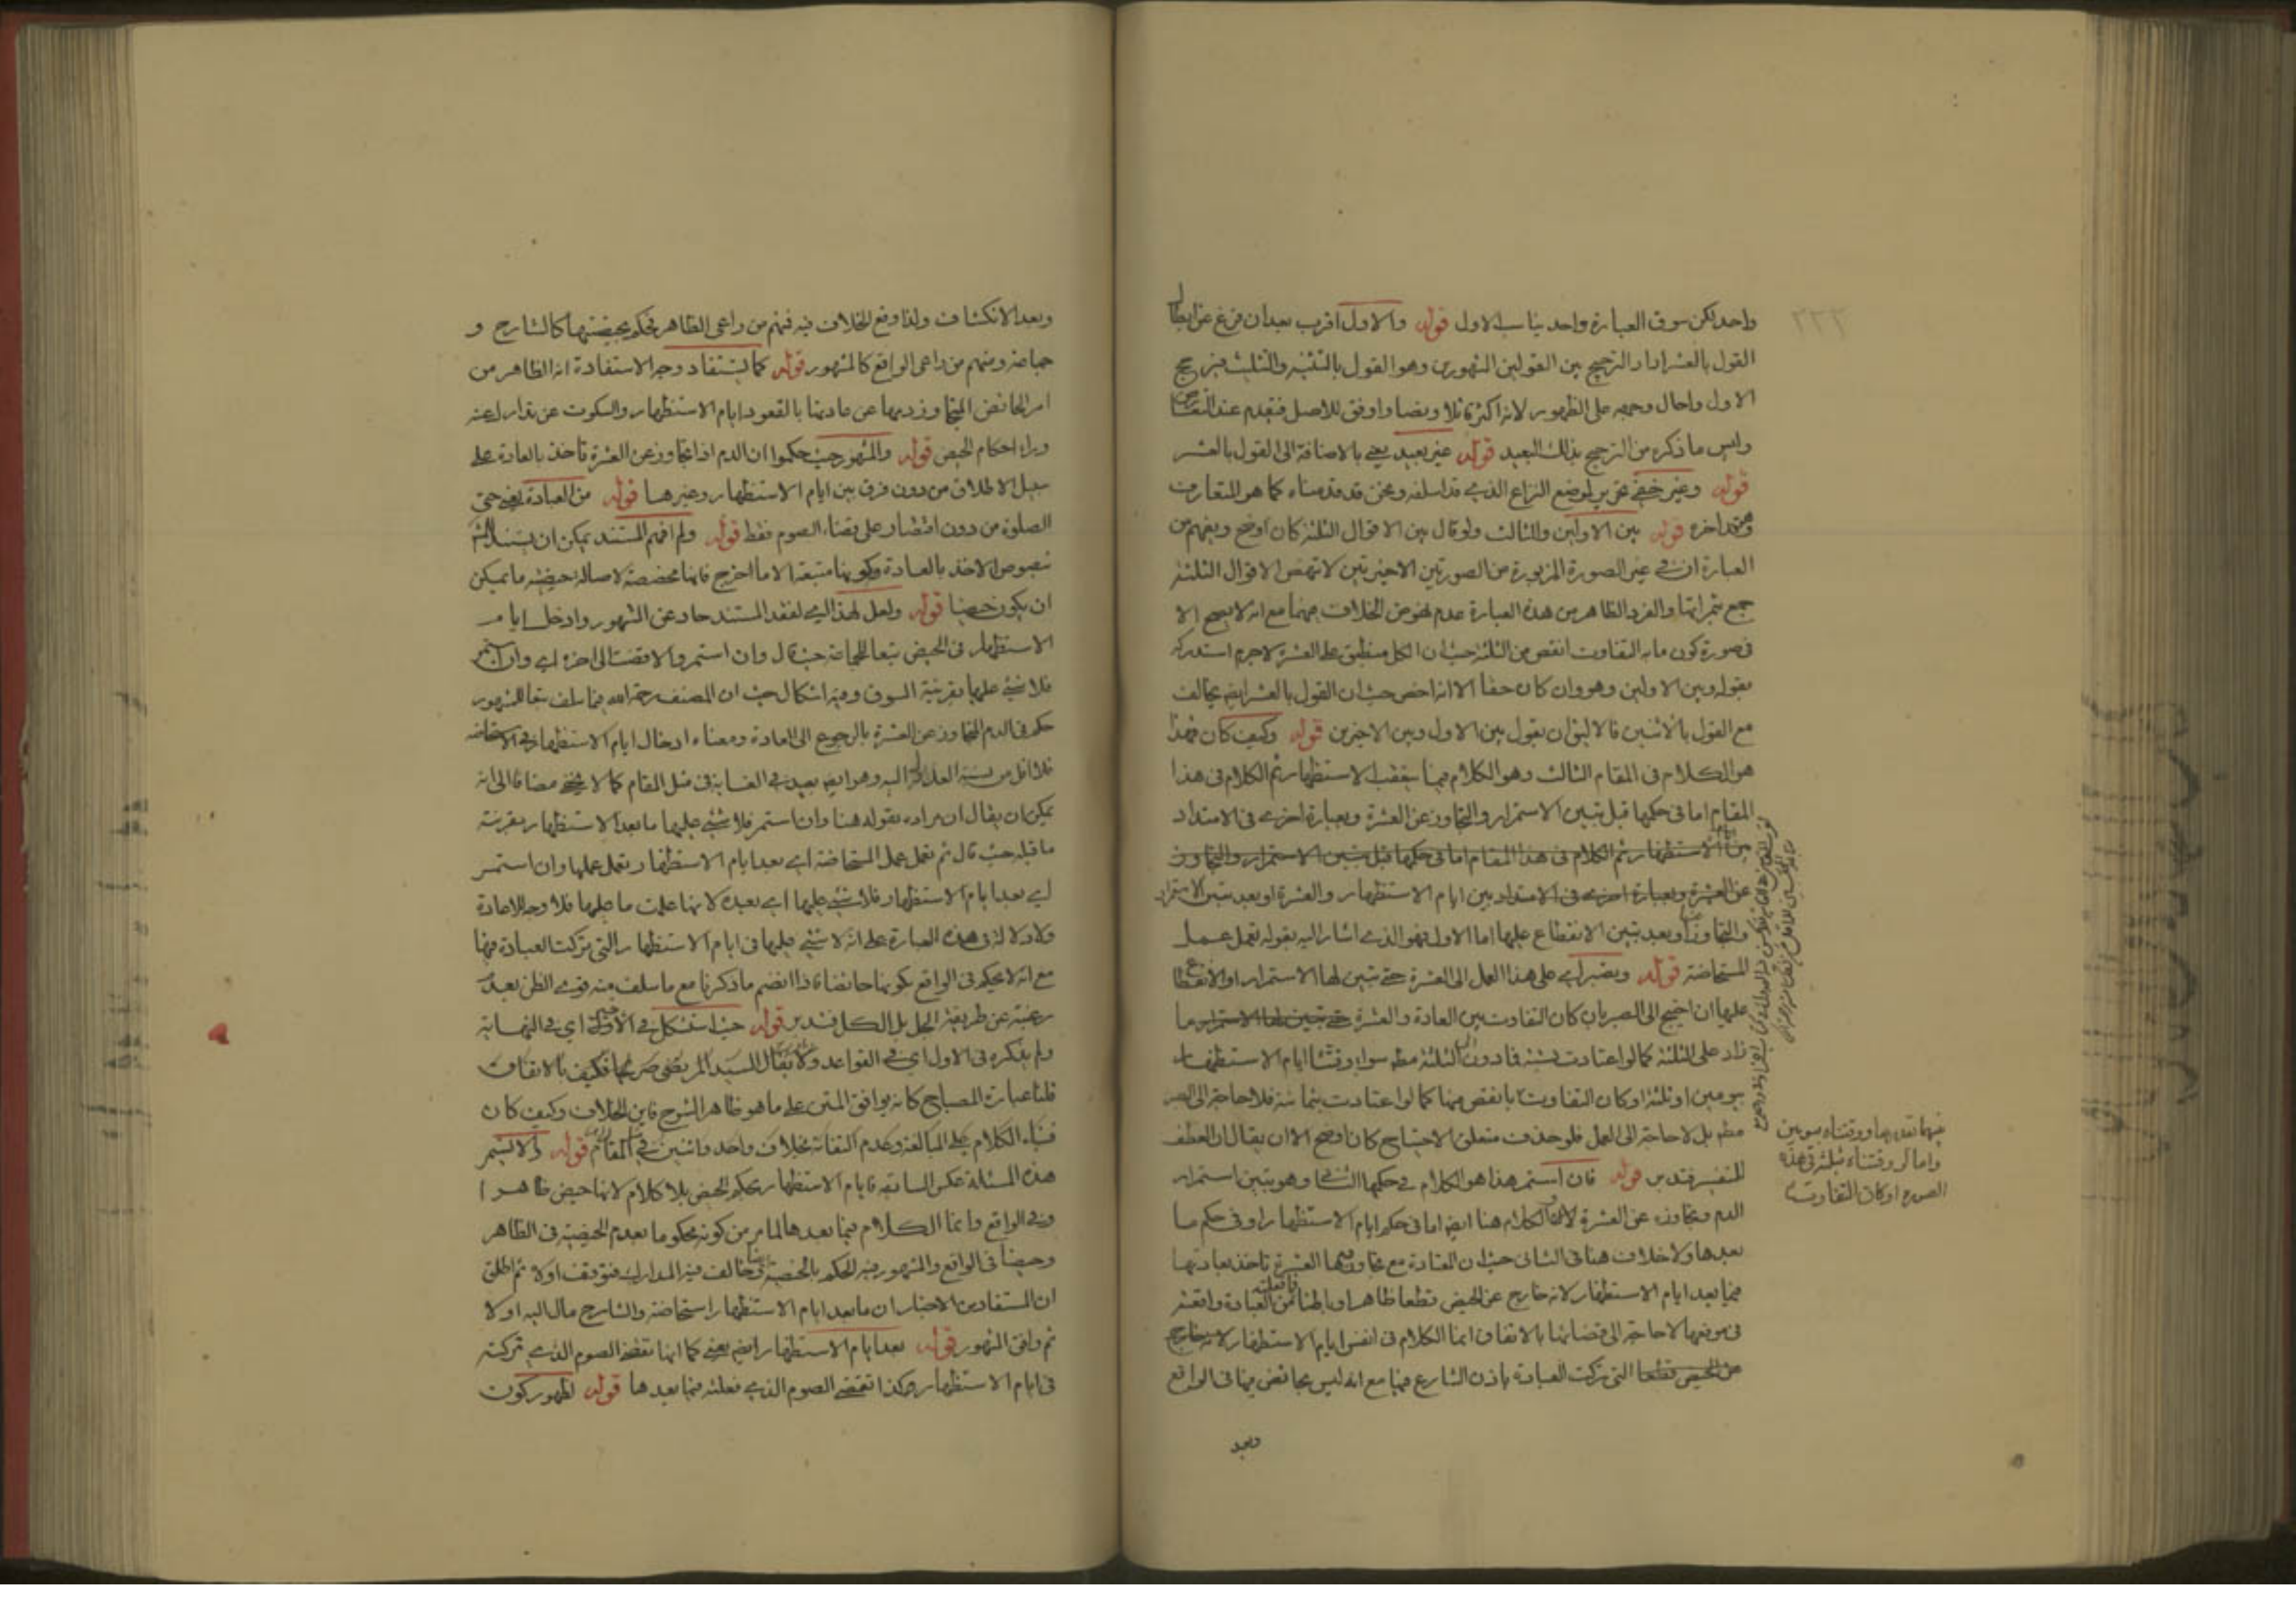 ٢٢٢
واحد لكن سوق العبارة واحد يناسب الاول قوله والاول اقرب بعد ان فرغ عن ابطال
القول بالعشر اراد الترجيح بين القولين المشهورين وهو القول بالتثنية والتثليث فرجح
الاول واحال وجهه على الظهور لانه اكثر قائلا ونصا واوفق للاصل فيقدم عند التعارض
وليس ما ذكره من الترجيح بذلك البعيد قوله غير بعيد يعني بالاضافة الى القول بالعشر
قوله وغير خفي تحرير لموضع النزاع الذي قد اسلفه ونحن قد قدمناه كما هو المتعارف
اخره قوله بين الاولين والثالث ولو قال بين الاقوال الثلثة كان اوضح ويفهم من
العبارة ان في غير الصورة المزبورة من الصورتين الاخيرتين لا تنهض الاقوال الثلثة
جمع ثمراتها والفرد الظاهر من هذه العبارة عدم نهوض الخلاف مهما مع انه لا يصح الا
في صورة كون ما به التفاوت انقص من الثلثة حيث ان الكل منطبق على العشرة لا جرم استدركه
بقوله وبين الاولين وهو وان كان حقا الا انه اخص حيث ان القول بالعشر ايضا يخالف
مع القول بالاثنين فالاليق ان يقول بين الاول وبين الاخيرين قوله وكيف كان فهذا
هو الكلام في المقام الثالث وهو الكلام فيما يتعقب الاستظهار ثم الكلام في هذا
المقام اما في حكمها قبل تبين الاستمرار والتجاوز عن العشرة وبعبارة اخرى في الامتداد
بين ايام الاستظهار ثم الكلام في هذا المقام اما في حكمها قبل تبين الاستمرار والتجاوز
عن العشرة وبعبارة اخرى في الامتداد بين ايام الاستظهار والعشرة او بعد تبين الاستمرار
والتجاوز او بعد تبين الانقطاع عليها اما الاول فهو الذي اشار اليه بقوله تعمل عمل
المستحاضة قوله وتصبر اي على هذا العمل الى العشرة حتى تبين لها الاستمرار او الانقطاع
عليها ان احتيج الى الصبر بان كان التفاوت بين العادة والعشرة حتى تبين لها الاستمرار ما
زاد على الثلثة كما لو اعتادت بستة فما دون الثلثة مط سواء وقتنا ايام الاستظهار
بيومين او ثلثة او كان التفاوت بانقص منها كما لو اعتادت بثمانية فلا حاجة الى الصبر
مط بل لا حاجة الى العمل فلو حذف متعلق الاحتياج كان اوضح الا ان يقال ان العطف
للتفسير فتدبر قوله فان استمر هذا هو الكلام في حكمها الثاني وهو تبين استمرار
الدم وتجاوزه عن العشرة لان الكلام هنا ايضا اما في حكم ايام الاستظهار او في حكم ما
بعدها ولا خلاف هنا في الثاني حيث ان المعتادة مع تجاوز دمها العشرة تاخذ بعادتها
فما بعد ايام الاستظهار لانه خارج عن الحيض قطعا ظاهرا وباطنا فما فعلته من العبادة واقعة
في موقعها لا حاجة الى قضائها بالاتفاق انما الكلام في انفس ايام الاستظهار لانه خارج
من الحيض قطعا التي تركت العبادة باذن الشارع فيها مع انه ليس بحائض فيها في الواقع
وبعد
فيما تقدمها ووقتناه بيومين
واما لو وقتناه بثلثة في هذه
الصورة او كان التفاوت
وبعد الانكشاف ولذا وقع الخلاف فيه فمنهم من راعى الظاهر فحكم بحيضيتها كالشارح و
جماعة ومنهم من راعى الواقع كالمشهور قوله كما يستفاد وجه الاستفادة انه الظاهر من
امر الحائض المتجاوز دمها عن عادتها بالقعود ايام الاستظهار والسكوت عن تدارك عنه
وراء احكام الحيض قوله والمشهور حيث حكموا ان الدم اذا تجاوز عن العشرة تاخذ بالعادة على
سبيل الاطلاق من دون فرق بين ايام الاستظهار وغيرها قوله من العبادة يعني حتى
الصلوة من دون اقتصار على قضاء الصوم فقط قوله ولم افهم المستند يمكن ان يستند
نصوص الاخذ بالعادة وكونها متبعة الا ما اخرج فانها مخصصة لاصالة حيضية ما يمكن
ان يكون حيضا قوله ولعل لهذا اي لفقد المستند حاد عن المشهور وادخل ايام
الاستظهار في الحيض تبعا للجماعة حيث قال وان استمر والا قضت الى اخره اي وان استمر
فلا شيء عليها بقرينة السوق وفيه اشكال حيث ان المصنف رحمه الله فيما سلف تبعا للمشهور
حكم في الدم المتجاوز عن العشرة بالرجوع الى العادة ومعناه ادخال ايام الاستظهار في الاستحاضة
فلا اقل من نسبة العدول اليه وهو ايضا بعيد في الغاية في مثل المقام كما لا يخفى مضافا الى انه
يمكن ان يقال ان مراده بقوله هنا وان استمر فلا شيء عليها ما بعد الاستظهار بقرينة
ما قبله حيث قال ثم تعمل عمل المستحاضة اي بعد ايام الاستظهار تعمل عملها وان استمر
اي بعد ايام الاستظهار فلا شيء عليها اي بعده لانها عملت ما عليها فلا وجه للاعادة
ولا دلالة في هذه العبارة على انه لا شيء عليها في ايام الاستظهار التي تركت العبادة فيها
مع انه لا يحكم في الواقع بكونها حائضا فاذا انضم ما ذكرنا مع ما سلف منه قوى الظن بعدم
رغبته عن طريقة الجل بل الكل فتدبر قوله حيث استشكل في الاخير اي في النهاية
ولم يذكره في الاول اي في القواعد ولا يقال السيد المرتضى صرح بها فكيف بالاتفاق
قلنا عبارة المصباح كانه يوافق المتن على ما هو ظاهر الشرح فاين الخلاف وكيف كان
فبناء الكلام على المبالغة وعدم التفاته بخلاف واحد واثنين في المقام قوله والا يستمر
هذه المسئلة عكس السابقة فايام الاستظهار بحكم الحيض بلا كلام لانها حيض ظاهرا
وفي الواقع وانما الكلام فيما بعدها لما مر من كونه محكوما بعدم الحيضية في الظاهر
وحيضا في الواقع والمشهور فيه الحكم بالحيضية خالف فيه المدارك فتوقف اولا ثم اطلق
ان المستفاد من الاخبار ان ما بعد ايام الاستظهار استحاضة والشارح مال اليه اولا
ثم وافق المشهور قوله بعد ايام الاستظهار ايضا يعني كما انها تقضي الصوم الذي تركته
في ايام الاستظهار هكذا تقضي الصوم الذي فعلته فيما بعدها قوله لظهور كون